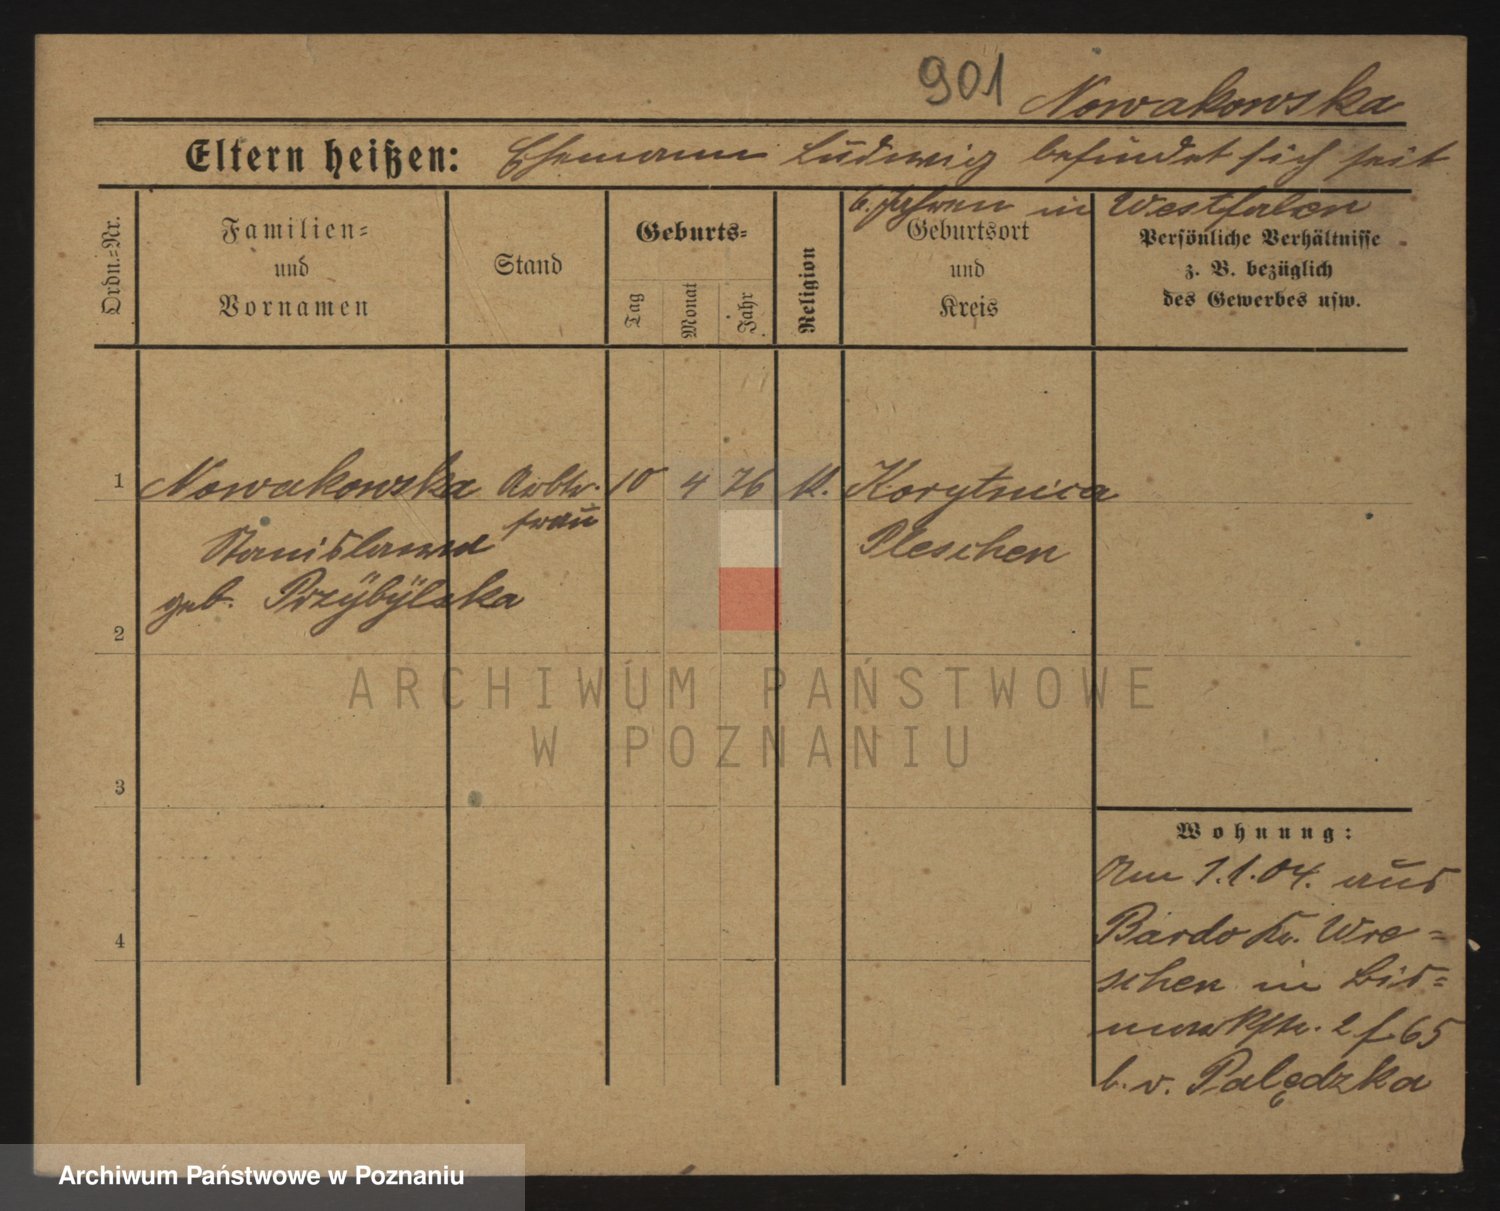 901 Nowakowska
Eltern heißen: Ehemann Ludwig befindet sich seit
6. Jahren in Westfalen
Ordn.-Nr.
Familien-
und
Vornamen
Stand
Geburts-
Tag
Monat
Jahr
Religion
Geburtsort
und
Kreis
Persönliche Verhältnisse
z. B. bezüglich
des Gewerbes usw.
1 Nowakowska Arbtr. 10 4 76 k. Korytnica
frau
Stanislawa Pleschen
geb. Przÿbÿlska
2
3
4
Wohnung:
Am 1.1.04. aus
Bardo Kr. Wre-
schen in Bis-
markstr. 2 f. 65
b. v. Palędzka
ARCHIWUM PAŃSTWOWE
W POZNANIU
Archiwum Państwowe w Poznaniu